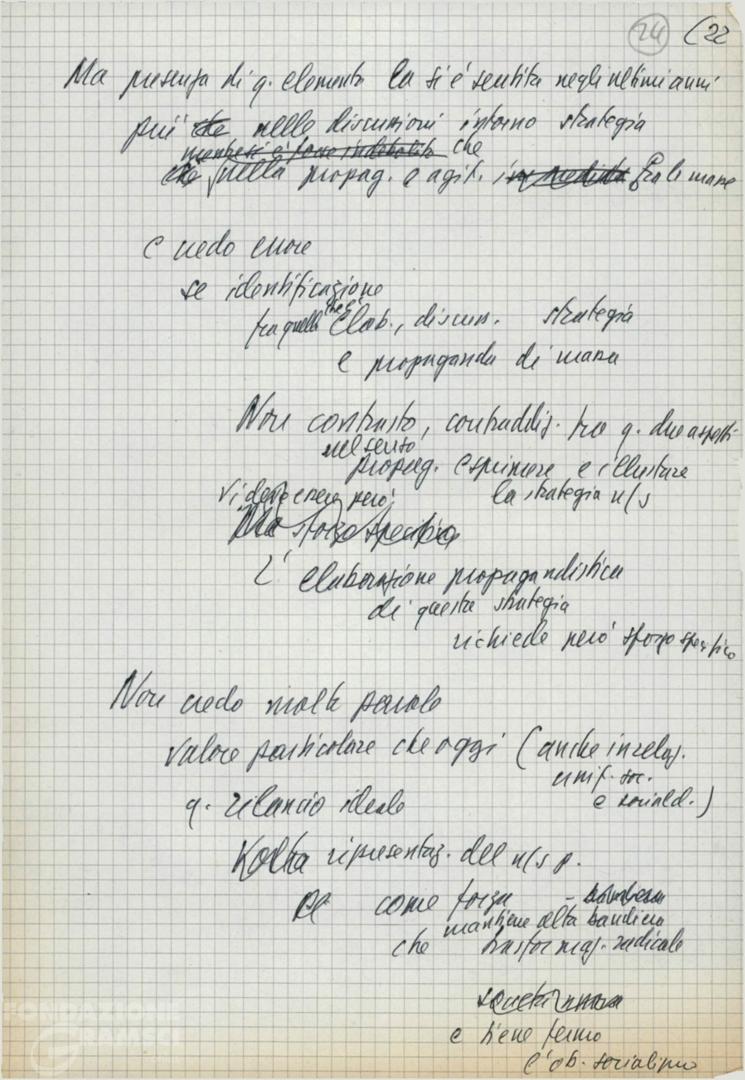 24 (22
Ma presenza di q. elemento la si è sentita negli ultimi anni
più che nelle discussioni intorno strategia
mentre si è forse indebolito che
nella propag. e agit. in media fra le masse
E credo errore
se identificazione
fra quella che è
elab., discuss. strategia
e propaganda di massa
Non contrasto, contraddiz. tra q. due aspetti
nel senso
propag. esprimere e illustrare
vi deve essere però la strategia n/s
Ma sforzo specifico
L'elaborazione propagandistica
di questa strategia
richiede però sforzo specifico
Non credo molte parole
valore particolare che oggi (anche in relaz.
unif. soc.
q. rilancio ideale e sociald.)
ripresentaz. del n/s p.
come forza
mantiene alta bandiera
che trasformaz. radicale
società nuova
e tiene fermo
l'ob. socialismo
FONDAZIONE
GRAMSCI